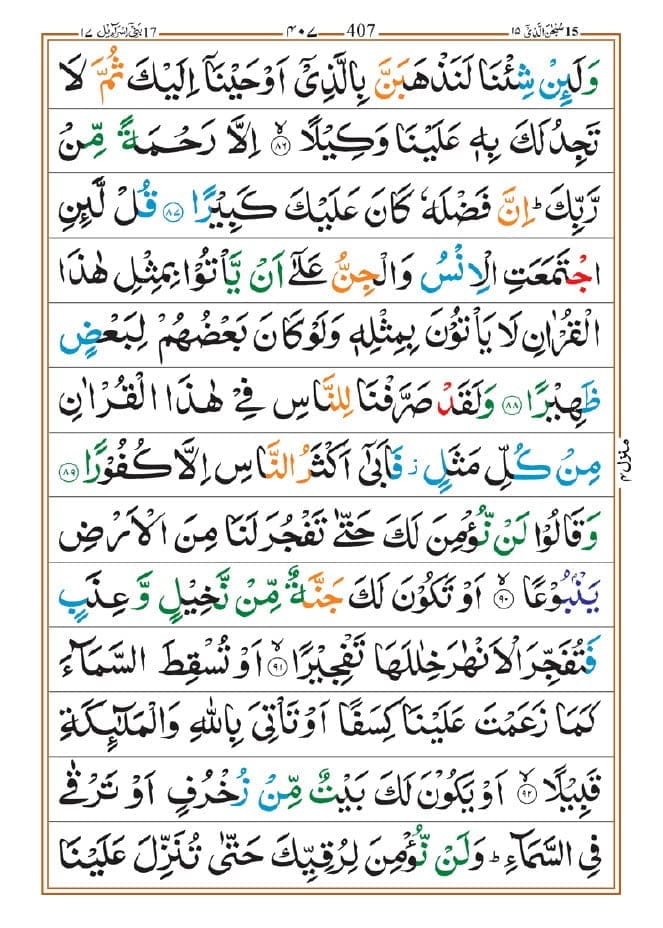 سُبْحٰنَ الَّذِیْۤ ۱۵ 15 407 ۴۰۷ بَنِیْۤ اِسْرَآءِیْل ۱۷ 17
وَلَىِٕنْ شِئْنَا لَنَذْهَبَنَّ بِالَّذِیْۤ اَوْحَیْنَاۤ اِلَیْكَ ثُمَّ لَا
تَجِدُ لَكَ بِهٖ عَلَیْنَا وَكِیْلًا ۙ۝۸۶ اِلَّا رَحْمَةً مِّنْ
رَّبِّكَ ؕ اِنَّ فَضْلَهٗ كَانَ عَلَیْكَ كَبِیْرًا ۝۸۷ قُلْ لَّىِٕنِ
اجْتَمَعَتِ الْاِنْسُ وَالْجِنُّ عَلٰۤی اَنْ یَّاْتُوْا بِمِثْلِ هٰذَا
الْقُرْاٰنِ لَا یَاْتُوْنَ بِمِثْلِهٖ وَلَوْ كَانَ بَعْضُهُمْ لِبَعْضٍ
ظَهِیْرًا ۝۸۸ وَلَقَدْ صَرَّفْنَا لِلنَّاسِ فِیْ هٰذَا الْقُرْاٰنِ
مِنْ كُلِّ مَثَلٍ ؗ فَاَبٰۤی اَكْثَرُ النَّاسِ اِلَّا كُفُوْرًا ۝۸۹
وَقَالُوْا لَنْ نُّؤْمِنَ لَكَ حَتّٰی تَفْجُرَ لَنَا مِنَ الْاَرْضِ
یَنْۢبُوْعًا ۙ۝۹۰ اَوْ تَكُوْنَ لَكَ جَنَّةٌ مِّنْ نَّخِیْلٍ وَّعِنَبٍ
فَتُفَجِّرَ الْاَنْهٰرَ خِلٰلَهَا تَفْجِیْرًا ۙ۝۹۱ اَوْ تُسْقِطَ السَّمَآءَ
كَمَا زَعَمْتَ عَلَیْنَا كِسَفًا اَوْ تَاْتِیَ بِاللّٰهِ وَالْمَلٰٓىِٕكَةِ
قَبِیْلًا ۙ۝۹۲ اَوْ یَكُوْنَ لَكَ بَیْتٌ مِّنْ زُخْرُفٍ اَوْ تَرْقٰی
فِی السَّمَآءِ ؕ وَلَنْ نُّؤْمِنَ لِرُقِیِّكَ حَتّٰی تُنَزِّلَ عَلَیْنَا
منزل ۴